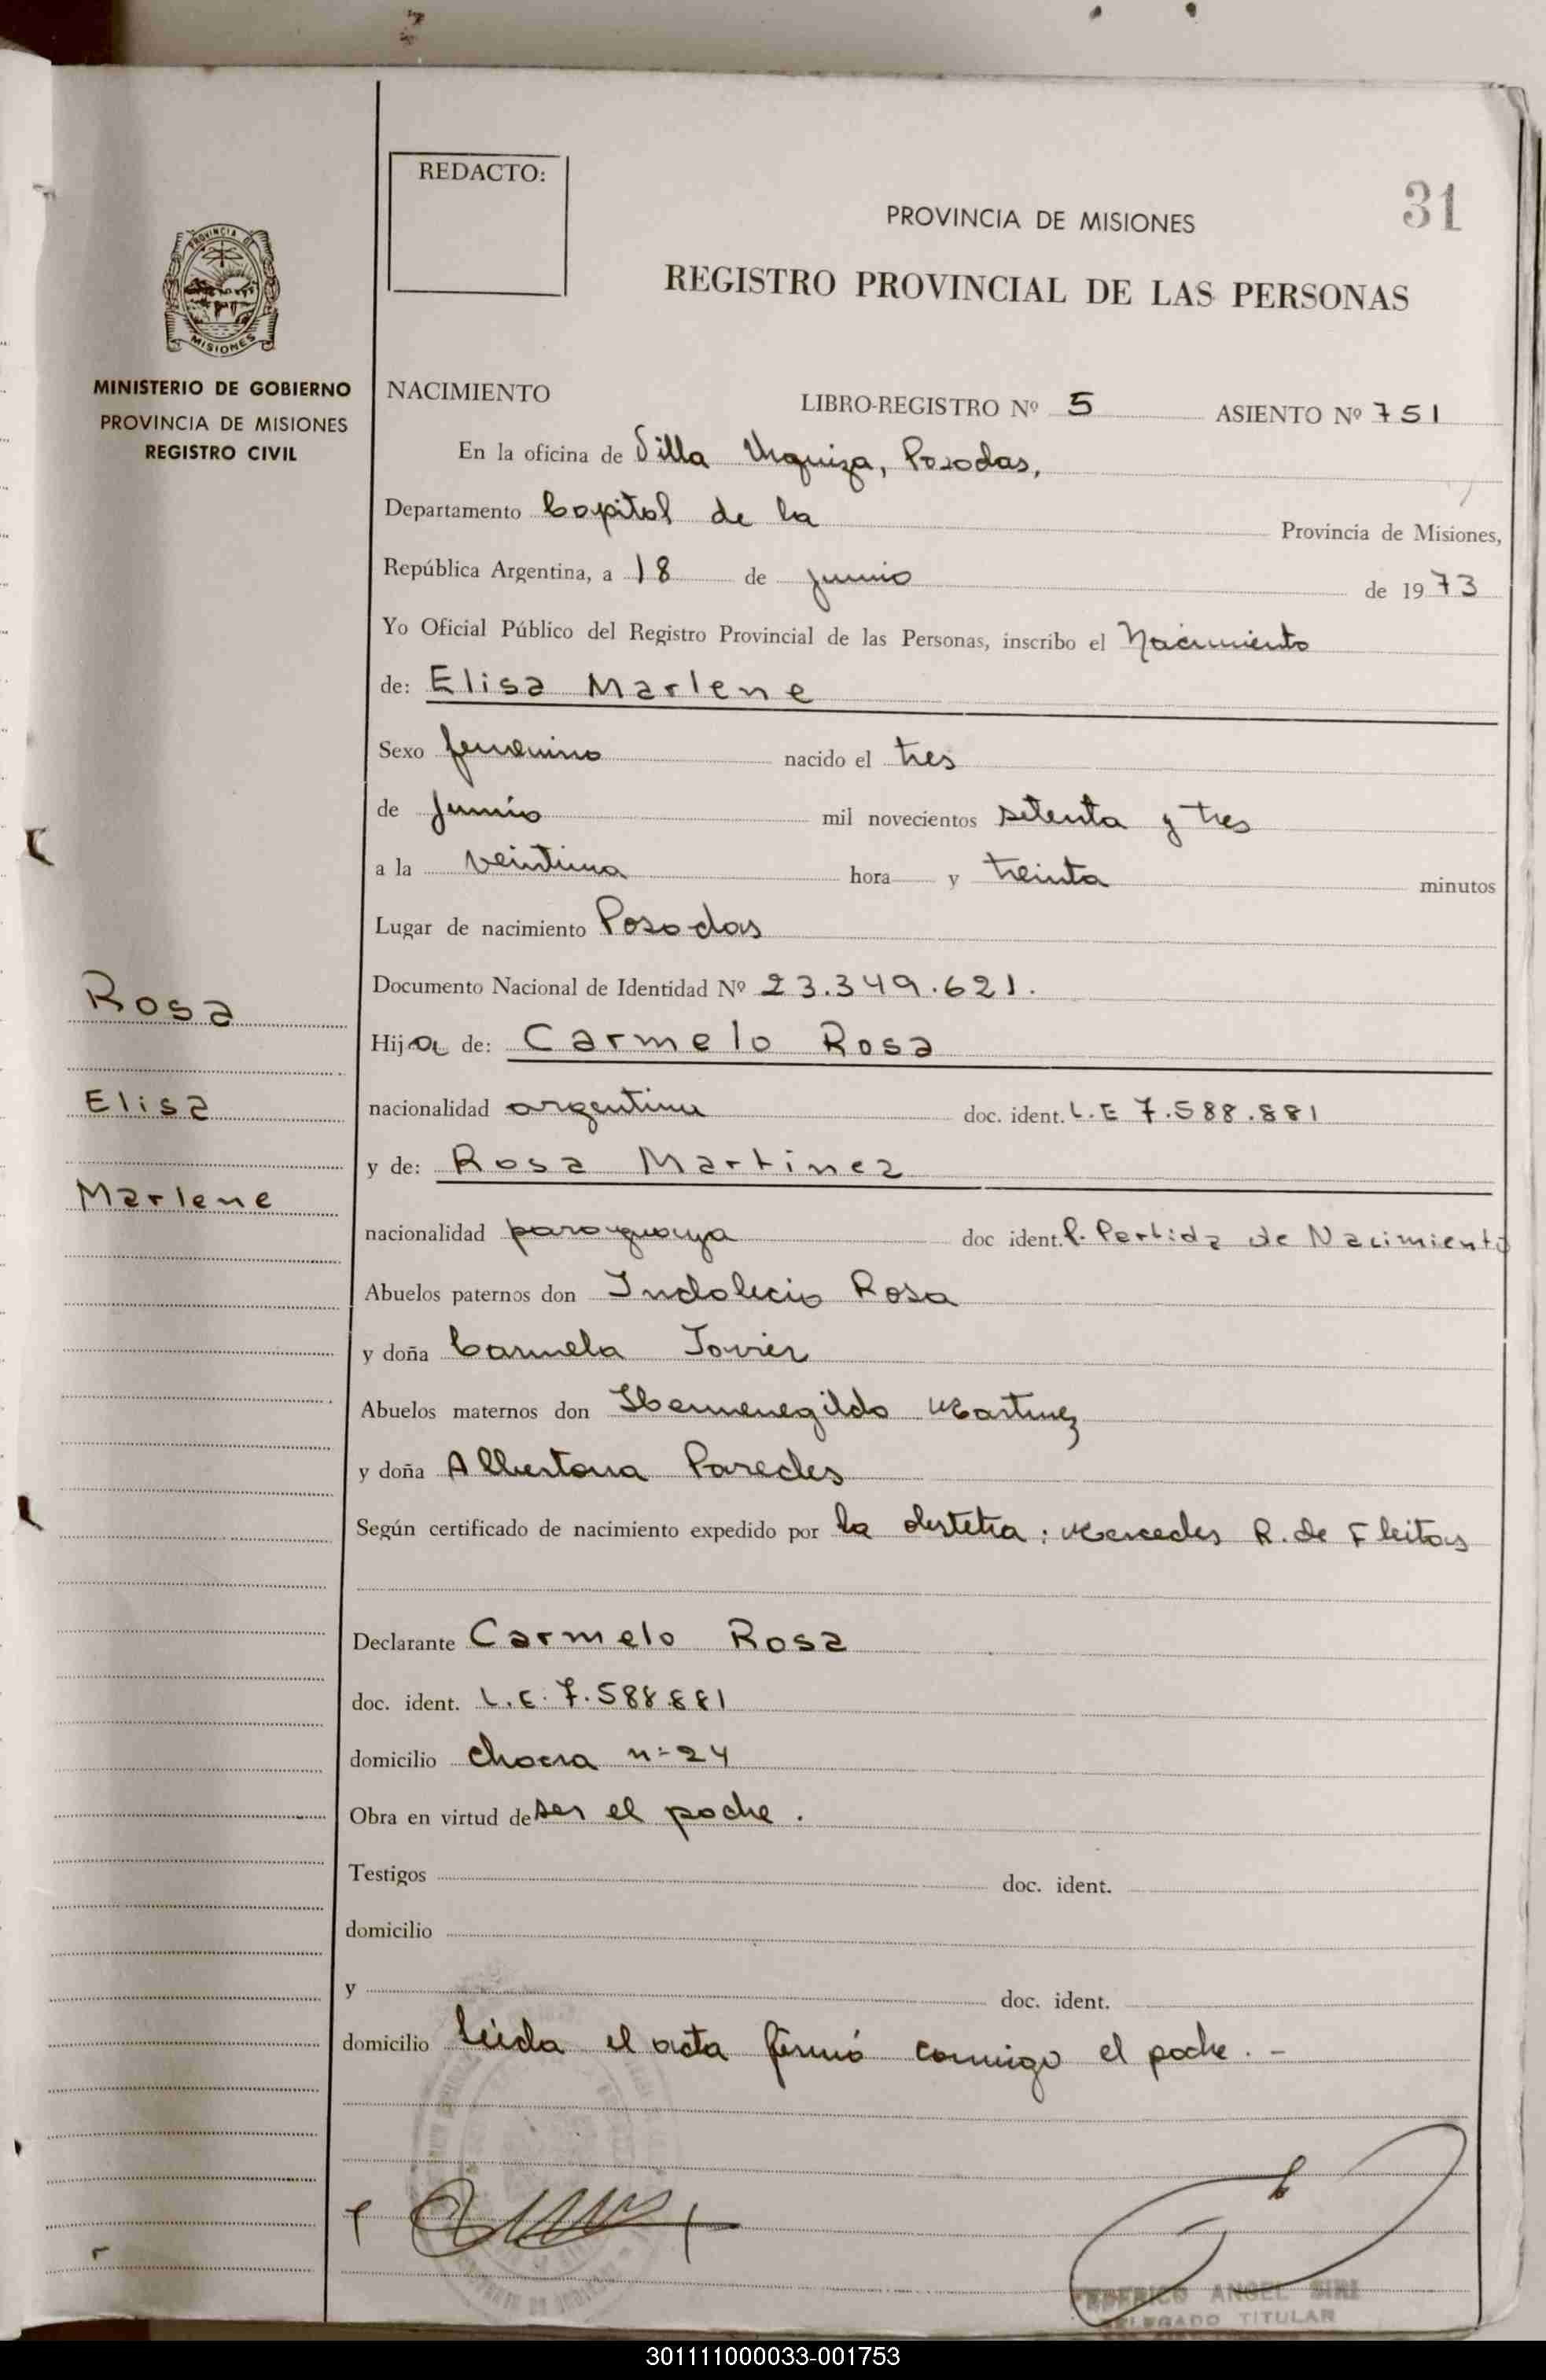 31
REDACTO:
PROVINCIA DE MISIONES
REGISTRO PROVINCIAL DE LAS PERSONAS
PROVINCIA DE
MISIONES
MINISTERIO DE GOBIERNO
PROVINCIA DE MISIONES
REGISTRO CIVIL
Rosa
Elisa
Marlene
NACIMIENTO LIBRO-REGISTRO Nº 5 ASIENTO Nº 751
En la oficina de Villa Urquiza, Posadas,
Departamento Capital de la Provincia de Misiones,
República Argentina, a 18 de junio de 1973
Yo Oficial Público del Registro Provincial de las Personas, inscribo el Nacimiento
de: Elisa Marlene
Sexo femenino nacido el tres
de junio mil novecientos setenta y tres
a la veintiuna hora y treinta minutos
Lugar de nacimiento Posadas
Documento Nacional de Identidad Nº 23.349.621.
Hija de: Carmelo Rosa
nacionalidad argentina doc. ident. L.E 7.588.881
y de: Rosa Martinez
nacionalidad paraguaya doc ident. P. Partida de Nacimiento
Abuelos paternos don Indalecio Rosa
y doña Carmela Javier
Abuelos maternos don Hermenegildo Martinez
y doña Albertana Paredes
Según certificado de nacimiento expedido por la obstetra: Mercedes R. de Fleitas
Declarante Carmelo Rosa
doc. ident. L.E. 7.588.881
domicilio chacra nº 24
Obra en virtud de ser el padre.
Testigos doc. ident.
domicilio
y doc. ident.
domicilio Leida el acta firmó conmigo el padre. -
FEDERICO ANGEL SIRI
DELEGADO TITULAR
301111000033-001753